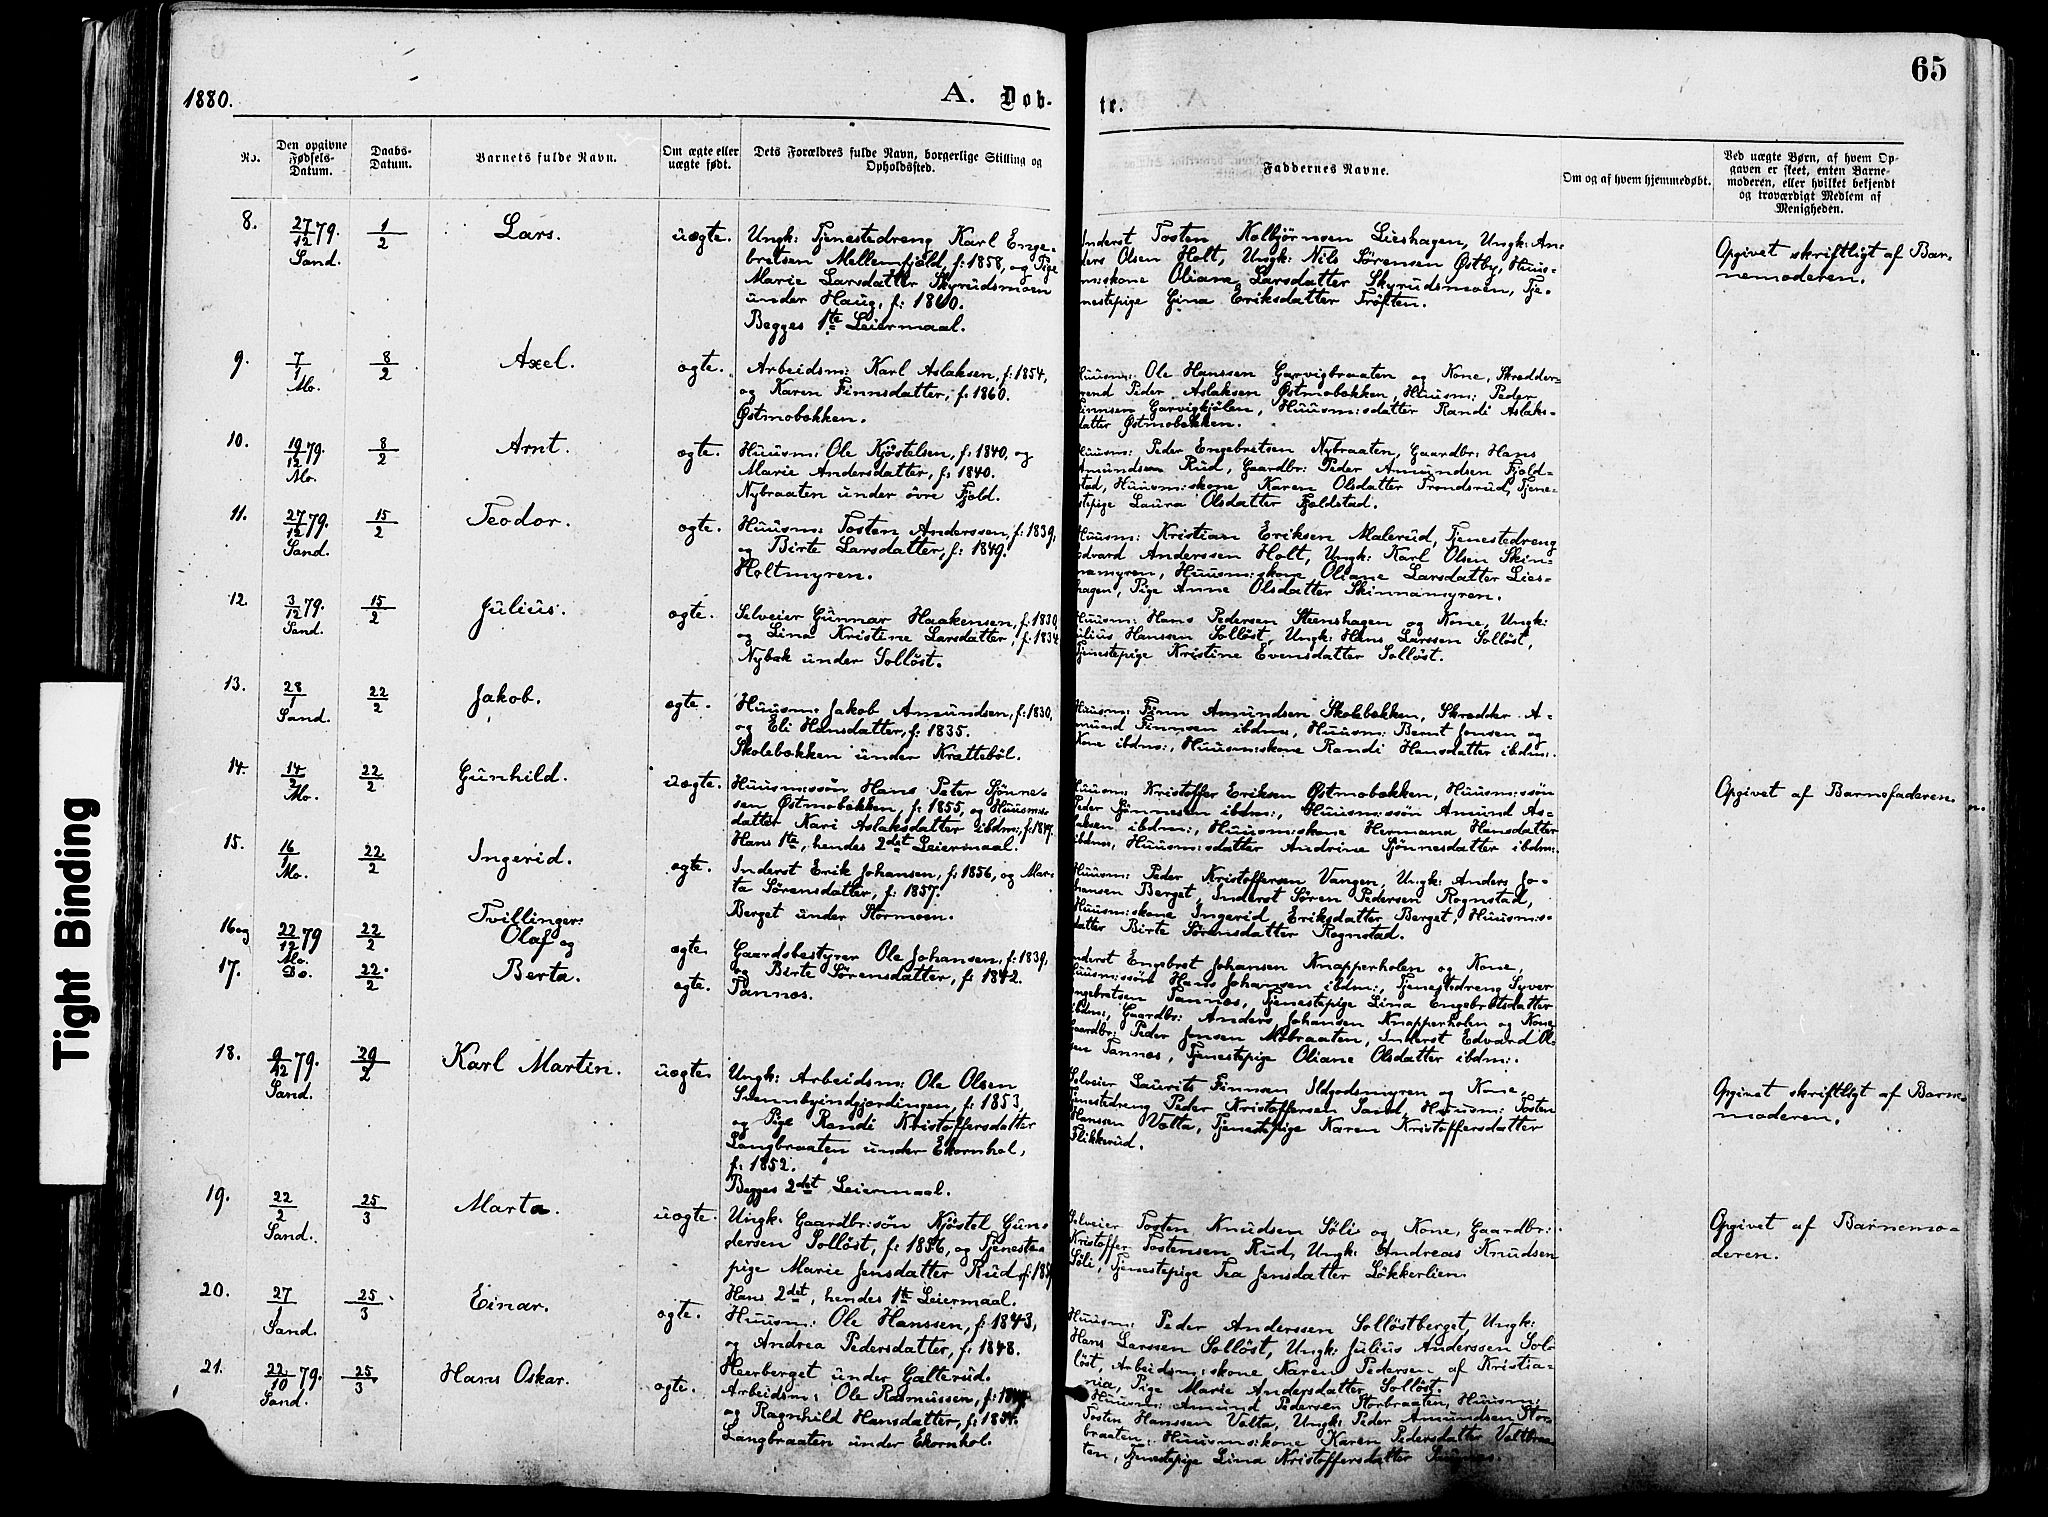 65
1880.
A. Døb-
te.
No.
Den opgivne
Fødsels-
Datum.
Daabs-
Datum.
Barnets fulde Navn.
Om ægte eller
uægte født.
Dets Forældres fulde Navn, borgerlige Stilling og
Opholdssted.
Faddernes Navne.
Om og af hvem hjemmedøbt.
Ved uægte Børn, af hvem Op-
gaven er skeet, enten Barne-
moderen, eller hvilket bekjendt
og troværdigt Medlem af
Menigheden.
8.
27/12 79.
Sand.
1/2
Lars.
uægte.
Ungk: Tjenestedreng Karl Enge-
bretsen Mellemfjeld, f: 1858, og Pige
Marie Larsdatter Skyrudsmoen
under Haug, f: 1860.
Begges 1te Leiermaal.
Inderst Tosten Kolbjörnsen Lieshagen, Ungk: An-
ders Olsen Holt, Ungk: Nils Sørensen Østby, Huus-
m:skone Oliane Larsdatter Skyrudsmoen, Tje-
nestepige Gina Eriksdatter Tröften.
Opgivet skriftligt af Bar-
nemoderen.
9.
7/1
Mo.
8/2
Axel.
ægte.
Arbeidsm: Karl Aslaksen, f: 1854,
og Karen Finnsdatter, f: 1860.
Østmobækken.
Huusm: Ole Hanssen Garvigbraaten og Kone, Skrædder-
svend Peder Aslaksen Østmobækken, Huusm: Peder
Finnsen Garvigkjölen, Huusm:sdatter Randi Aslaks-
datter Østmobækken.
10.
19/12 79.
Mo.
8/2
Arnt.
ægte.
Huusm: Ole Kjöstelsen, f: 1840, og
Marie Andersdatter, f: 1840.
Nybraaten under övre Fjeld.
Huusm: Peder Engebretsen Nybraaten, Gaardbr: Hans
Amundsen Rud, Gaardbr: Peder Amundsen Fjeld-
stad, Huusm:skone Karen Olsdatter Trondsrud, Tjene-
stepige Laura Olsdatter Fjeldstad.
11.
27/12 79.
Sand.
15/2
Teodor.
ægte.
Huusm: Tosten Anderssen, f: 1839,
og Birte Larsdatter, f: 1849.
Holtmyren.
Huusm: Kristian Eriksen Malerud, Tjenestedreng
Edvard Anderssen Holt, Ungk: Karl Olsen Skin-
namyren, Huusm:skone Oliane Larsdatter Lies-
hagen, Pige Anne Olsdatter Skinnamyren.
12.
3/12 79.
Sand.
15/2
Julius.
ægte.
Selveier Gunnar Haakensen, f: 1830,
og Lina Kristine Larsdatter, f: 1834
Nybæk under Solløst.
Huusm: Hans Pedersen Steenshagen og Kone, Ungk:
Julius Hanssen Solløst, Ungk: Hans Larssen Solløst,
Tjenestepige Kristine Evensdatter Solløst.
13.
28/1
Sand.
22/2
Jakob.
ægte.
Huusm: Jakob Amundsen, f: 1830,
og Eli Hansdatter, f: 1835.
Skolebækken under Krætteböl.
Huusm: Finn Amundsen Skolebækken, Skrædder A-
mund Finnsen ibdm:, Huusm: Bernt Jensen og
Kone ibdm:, Huusm:skone Randi Hansdatter ibdm:.
14.
14/2
Mo.
22/2
Gunhild.
uægte.
Huusm:ssøn Hans Peter Sjönne-
sen Østmobækken, f: 1855, og Huusm:s-
datter Kari Aslaksdatter ibdm:, f: 1847.
Hans 1te, hendes 2det Leiermaal.
Huusm: Kristoffer Eriksen Østmobækken, Huusm:ssön
Peder Sjönnesen ibdm:, Huusm:ssön Amund As-
laksen ibdm:, Huusm:skone Hermana Hansdatter
ibdm:, Huusm:sdatter Andrine Sjönnesdatter ibdm:.
Opgivet af Barnefaderen.
15.
16/1
Mo.
22/2
Ingerid.
ægte.
Inderst Erik Johansen, f: 1856, og Mar-
ta Sørensdatter, f: 1857.
Berget under Stormoen.
Huusm: Peder Kristoffersen Vangen, Ungk: Anders Jo-
hansen Berget, Inderst Sören Pedersen Rognstad,
Huusm:skone Ingerid Eriksdatter Berget, Huusm:s-
datter Birte Sørensdatter Rognstad.
16 og
22/12 79
Mo.
22/2
Tvillinger:
Olaf og
ægte.
Gaardsbestyrer Ole Johansen, f: 1839,
og Birte Sørensdatter, f: 1842.
Tannæs.
17.
Do.
22/2
Berta.
ægte.
Inderst Engebret Johansen Knapperholen og Kone,
Huusm:ssön Hans Johansen ibdm:, Tjenestedreng Syver
Engebretsen Tannæs, Tjenestepige Lina Engebretsdatter
ibdm:, Gaardbr: Anders Johansen Knapperholen og Kone,
Gaardbr: Peder Jensen Mobraaten, Inderst Edvard Ol-
sen Tannæs, Tjenestepige Oliane Olsdatter ibdm:.
18.
9/12 79.
Sand.
29/2
Karl Martin.
uægte.
Ungk: Arbeidsm: Ole Olsen
Svennbyindgjærdingen, f: 1853,
og Pige Randi Kristoffersdatter
Langbraaten under Ekornhol,
f: 1852.
Begges 2det Leiermaal.
Selveier Laurits Finnsen Ildgodsmyren og Kone,
Tjenestedreng Peder Kristoffersen Sand, Huusm: Tosten
Hanssen Vælta, Tjenestepige Karen Kristoffersdatter
Flikkerud.
Opgivet skriftligt af Barne-
moderen.
19.
22/2
Sand.
25/3
Marta.
uægte.
Ungk: Gaardbr:sön Kjöstel Gun-
dersen Solløst, f: 1856, og Tjeneste-
pige Marie Jensdatter Rud, f: 185
Hans 2det, hendes 1te Leiermaal.
Selveier Tosten Knudsen Söli og Kone, Gaardbr:
Kristoffer Tostensen Rud, Ungk: Andreas Knudsen
Söli, Tjenestepige Tea Jensdatter Løkkerlien.
Opgivet af Barnemo-
deren.
20.
27/1
Sand.
25/3
Einar.
ægte.
Huusm: Ole Hanssen, f: 1843,
og Andrea Pedersdatter, f: 1848.
Heerberget under Gælterud.
Huusm: Peder Anderssen Solløstberget, Ungk:
Hans Larssen Solløst, Ungk: Julius Anderssen Sol-
løst, Arbeidsm:skone Karen Pedersen af Kristia-
nia, Pige Marie Andersdatter Solløst.
21.
22/10 79.
Sand.
25/3
Hans Oskar.
ægte.
Arbeidsm: Ole Rasmussen, f:
og Ragnhild Hansdatter, f: 1854.
Langbraaten under Ekornhol.
Huusm: Amund Pedersen Storbraaten, Huusm:
Tosten Hanssen Vælta, Ungk: Peder Amundsen Stor-
braaten, Huusm:skone Karen Pedersdatter Væltbraa-
ten, Tjenestepige Lina Kristoffersdatter
Tight Binding